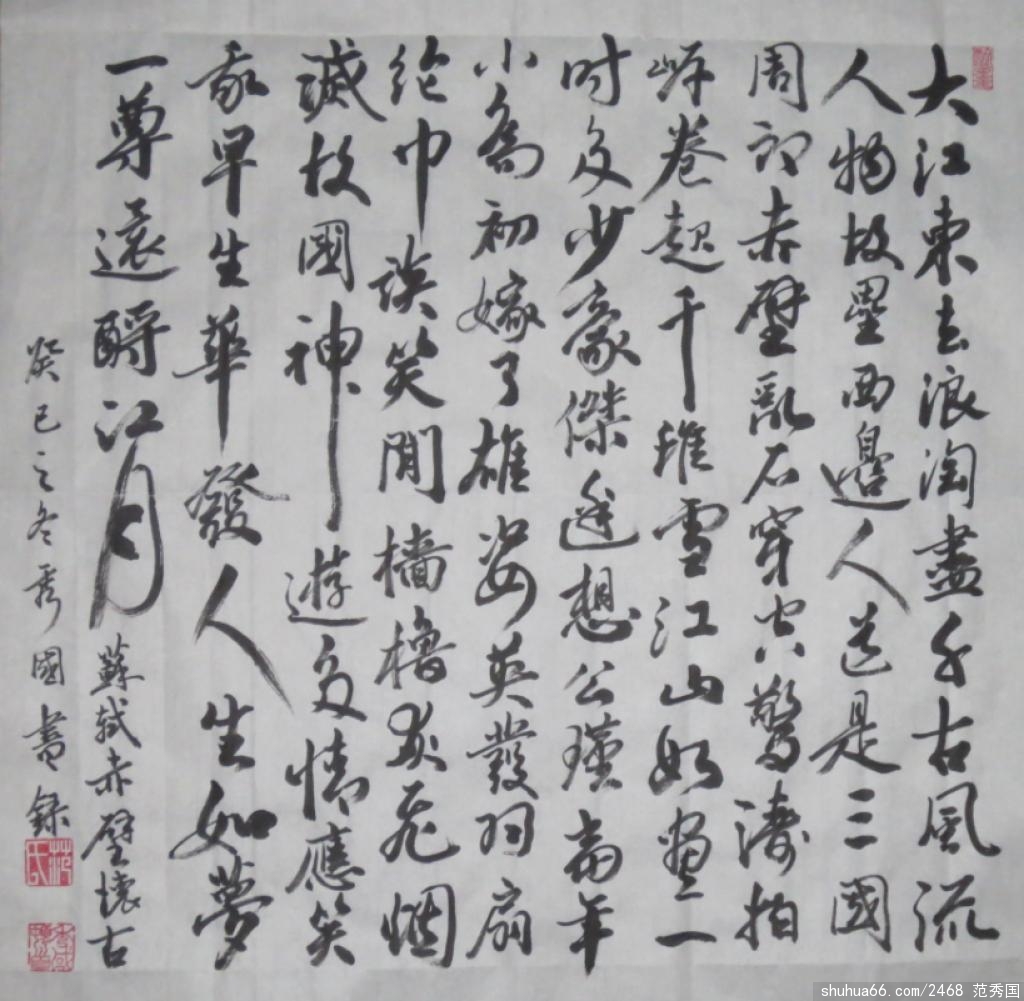 大江東去浪淘盡千古風流
人物故壘西邊人道是三國
周郎赤壁亂石穿空驚濤拍
岸卷起千堆雪江山如畫一
時多少豪傑遥想公瑾當年
小喬初嫁了雄姿英發羽扇
綸巾談笑間檣櫓灰飛烟
滅故國神遊多情應笑
我早生華發人生如夢
一尊還酹江月蘇軾赤壁懷古
癸巳之冬秀國書錄
范氏
shuhua66.com/2468 范秀国